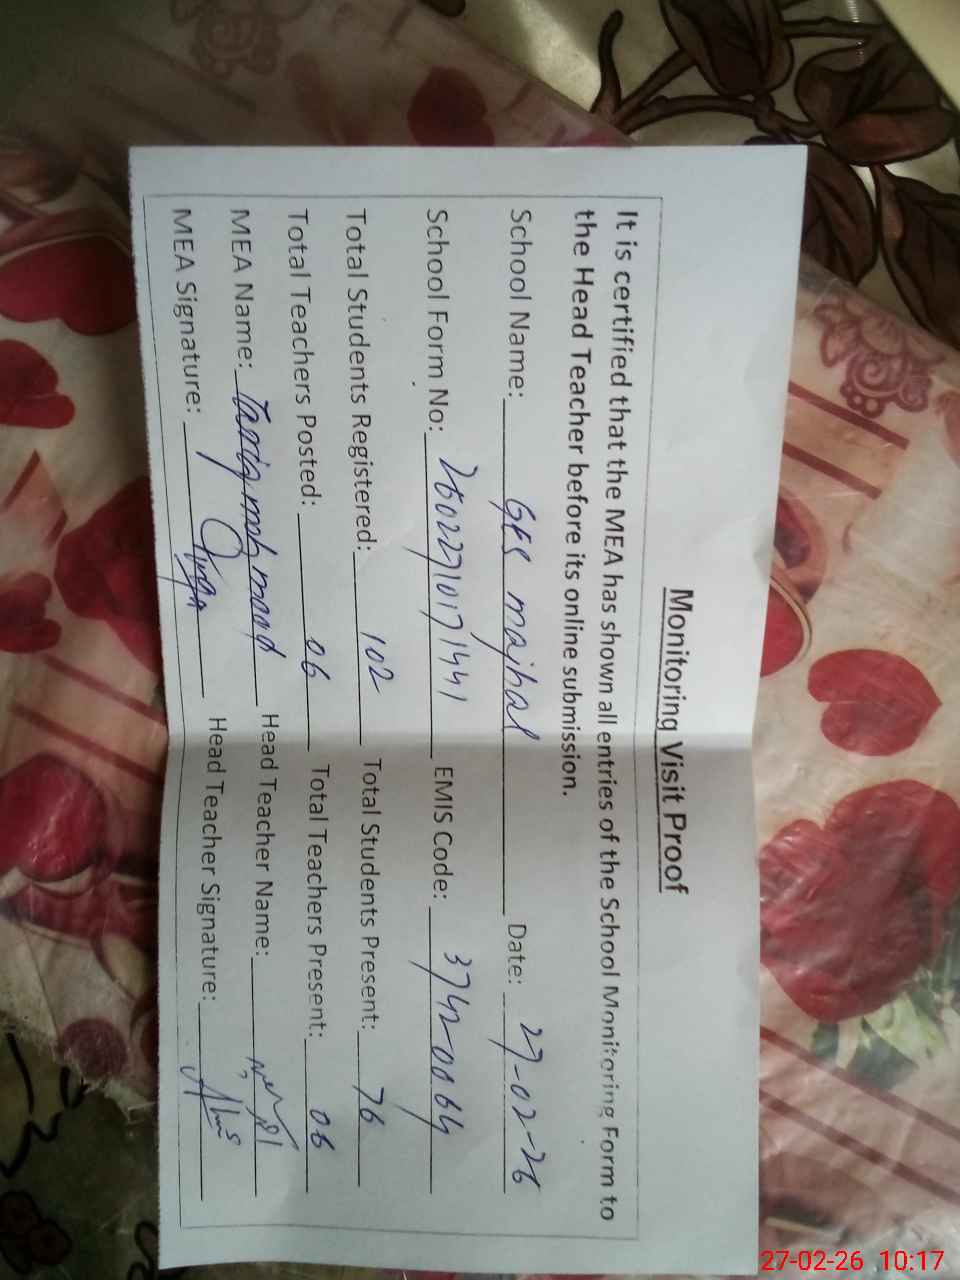 Monitoring Visit Proof
It is certified that the MEA has shown all entries of the School Monitoring Form to
the Head Teacher before its online submission.
School Name: GES majhal Date: 27-02-26
School Form No: 26022710171441 EMIS Code: 37420064
Total Students Registered: 102 Total Students Present: 76
Total Teachers Posted: 06 Total Teachers Present: 06
MEA Name: Tariq mehmood Head Teacher Name:
MEA Signature: Head Teacher Signature:
27-02-26 10:17